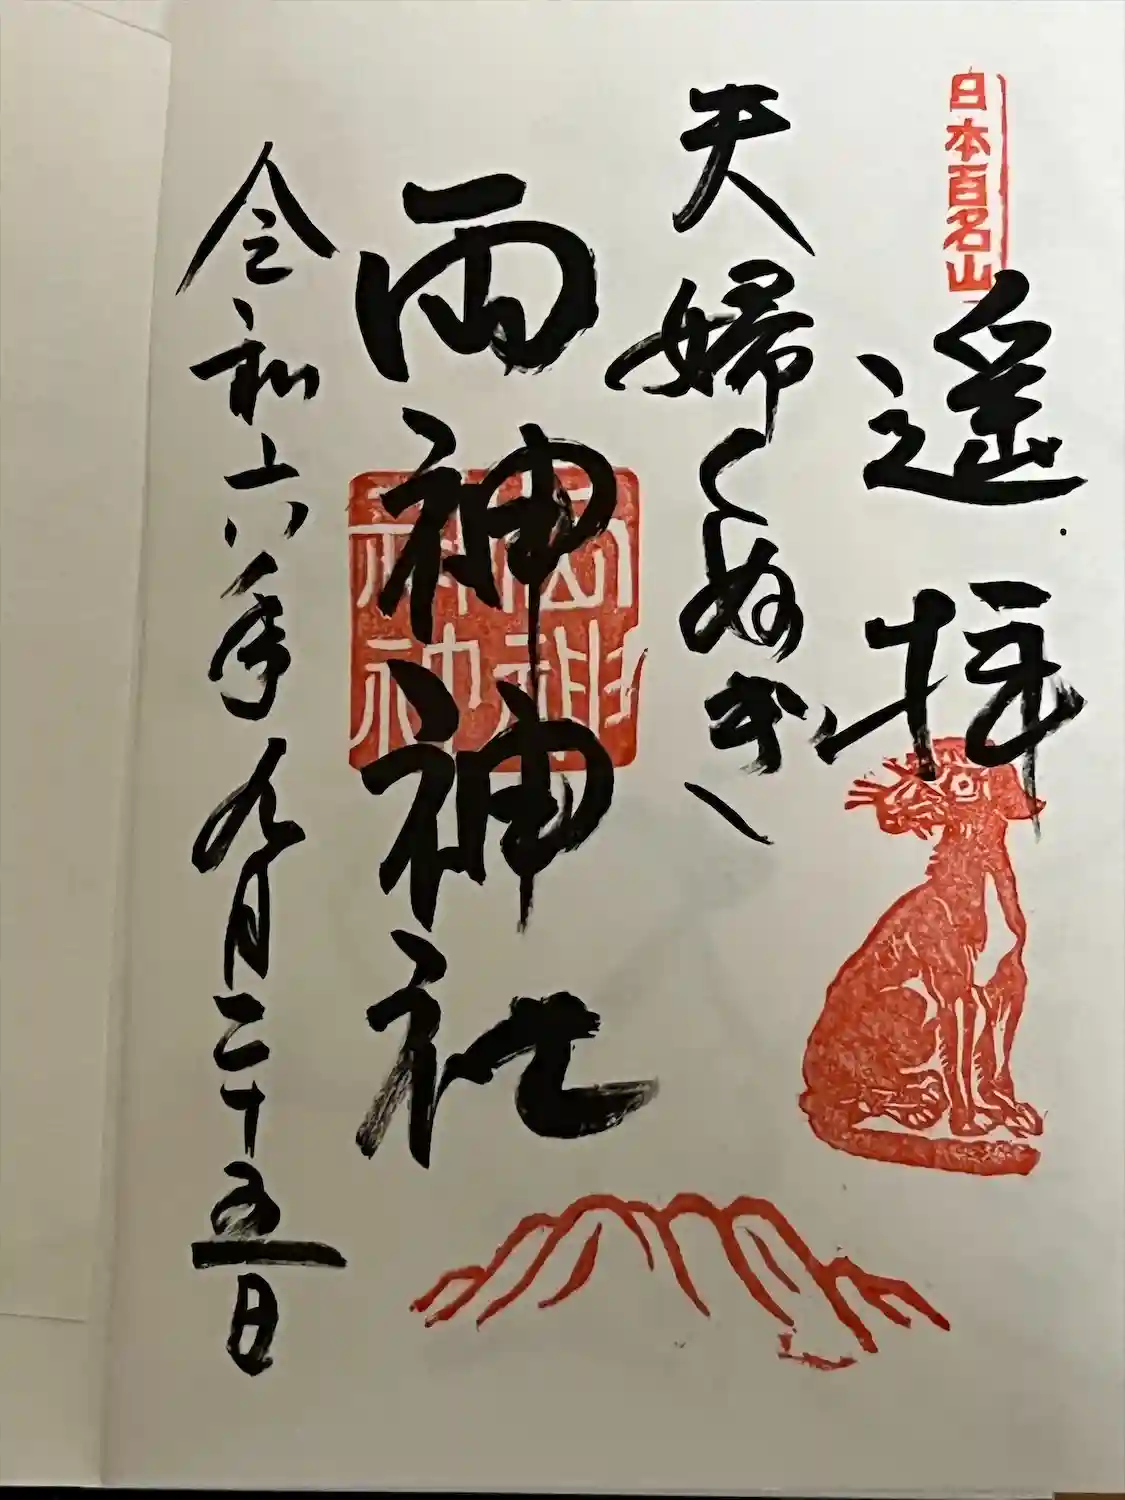 日本百名山
遥拝
夫婦くぬぎ
両神神社
令和六年九月二十五日